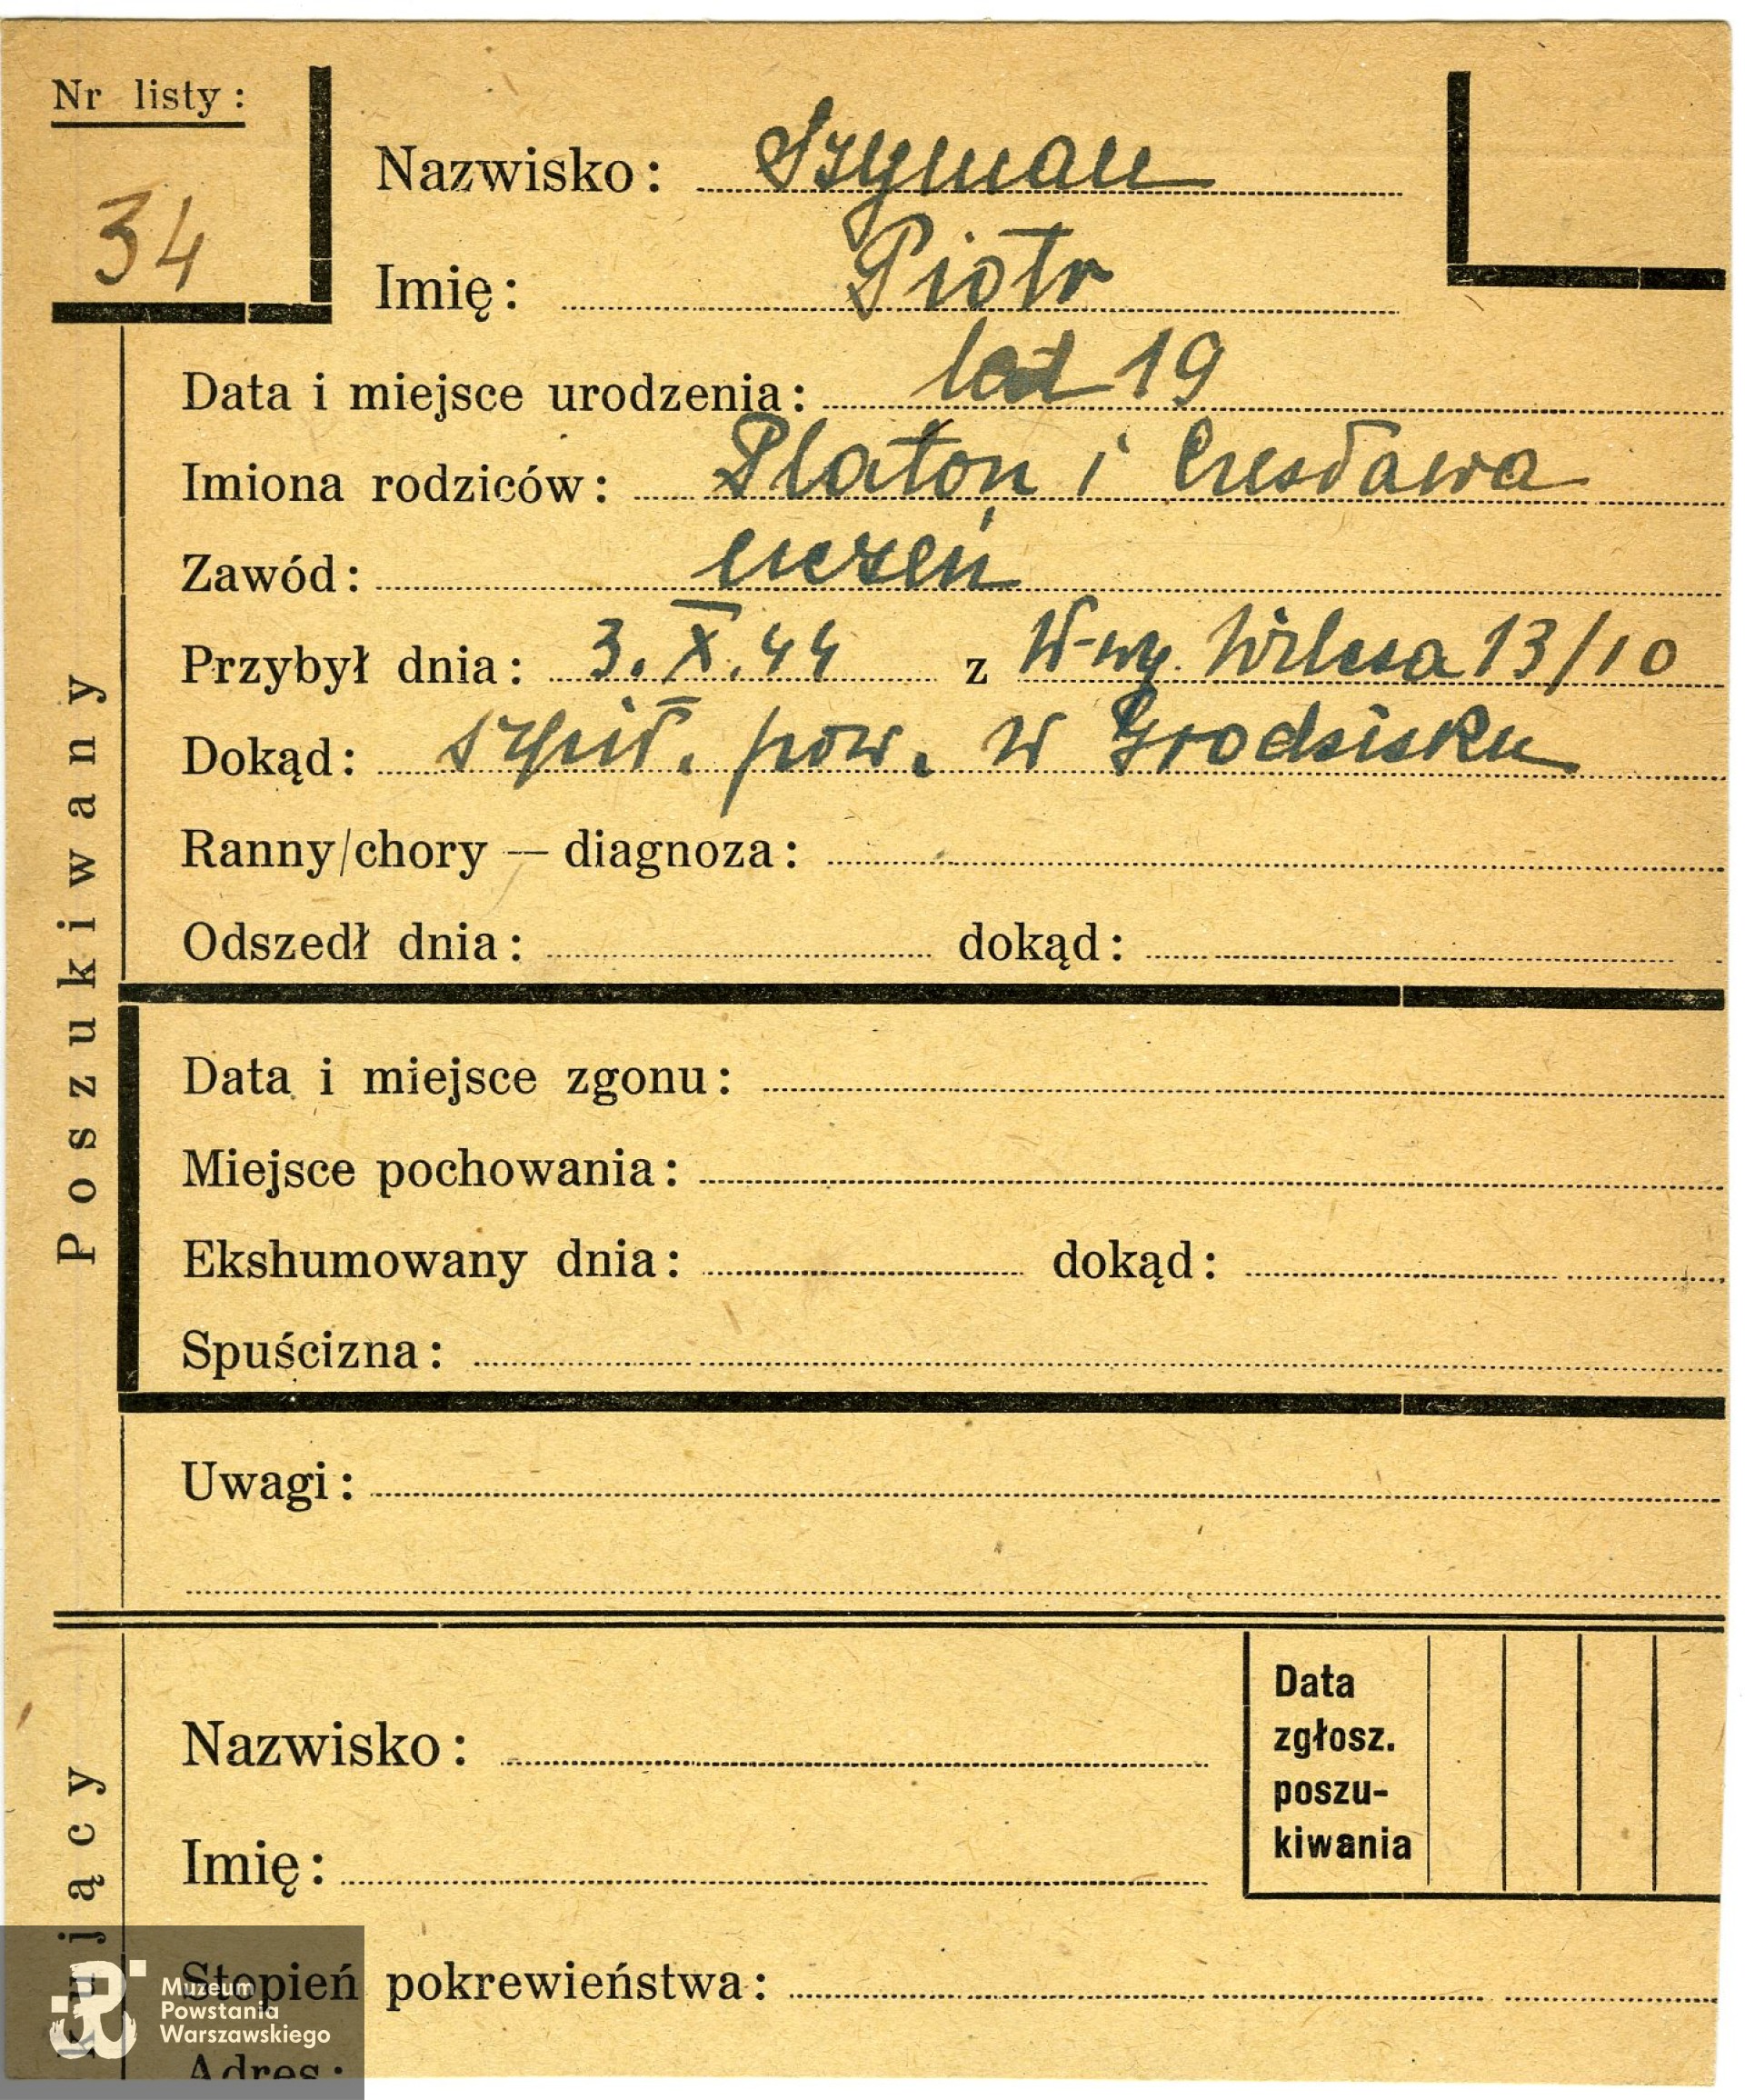 Nr listy:
34
Nazwisko: Szyman
Imię: Piotr
Data i miejsce urodzenia: lat 19
Imiona rodziców: Platon i Czesława
Zawód: uczeń
Przybył dnia: 3.X.44 z W-wy. Wilcza 13/10
Dokąd: szpit. pow. w Grodzisku
Ranny/chory — diagnoza:
Odszedł dnia: dokąd:
Poszukiwany
Data i miejsce zgonu:
Miejsce pochowania:
Ekshumowany dnia: dokąd:
Spuścizna:
Uwagi:
Nazwisko:
Imię:
Data
zgłosz.
poszu-
kiwania
Stopień pokrewieństwa:
Adres:
Muzeum
Powstania
Warszawskiego